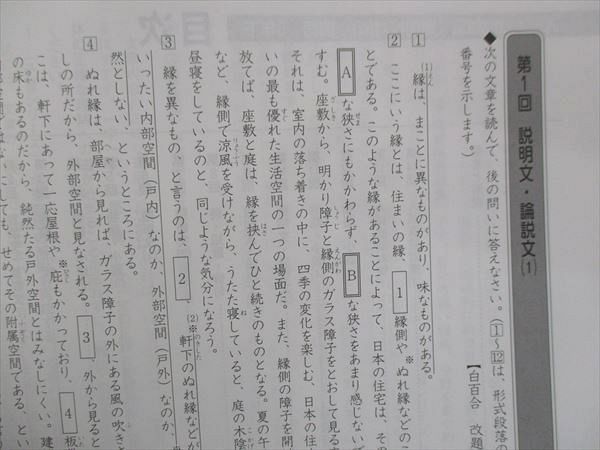 第1回 説明文・論説文(1)
◆次の文章を読んで、後の問いに答えなさい。(①〜⑫は、形式段落の
番号を示します。)
【白百合 改題
1 縁は、まことに異なものがあり、味なものがある。
(1)えん
2 ここにいう縁とは、住まいの縁、1縁側や※ぬれ縁などのこ
とである。このような縁があることによって、日本の住宅は、その
Aな狭さにもかかわらず、Bな狭さをあまり感じないで
すむ。座敷から、明かり障子と縁側のガラス障子をとおして見る庭
それは、室内の落ち着きの中に、四季の変化を楽しむ、日本の住ま
いの最も優れた生活空間の一つの場面だ。また、縁側の障子を開
放てば、座敷と庭は、縁を挟んでひと続きのものとなる。夏の午
など、縁側で涼風を受けながら、うたた寝していると、庭の木陰
昼寝をしているのと、同じような気分になろう。
3 縁を異なもの、と言うのは、2、(2)※軒下のぬれ縁などが
いったい内部空間(戸内)なのか、外部空間(戸外)なのか、
然としない、というところにある。
4 ぬれ縁は、部屋から見れば、ガラス障子の外にある風の吹き
しの所だから、外部空間と見なされる。3、外から見ると
こは、軒下にあって一応屋根や※庇もかかっており、4板
の床もあるのだから、純然たる戸外空間とはみなしにくい。建
にしても、せめてその附属空間である、とい
目次